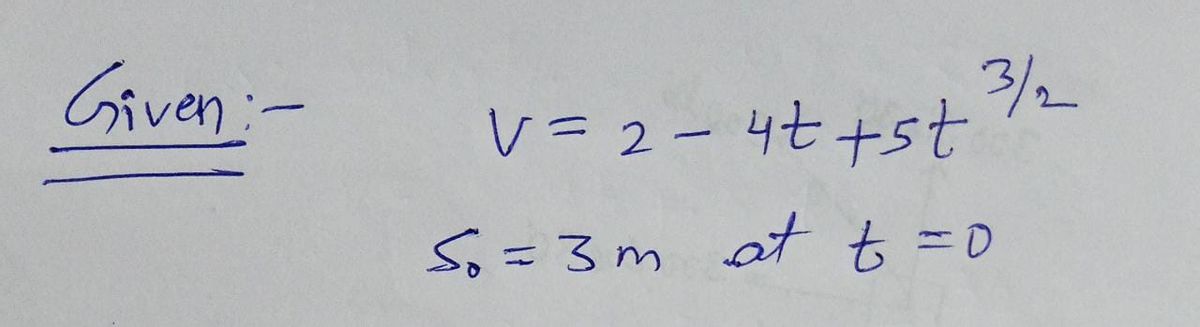 Given:- v = 2 - 4t + 5t^3/2
S₀ = 3 m at t = 0